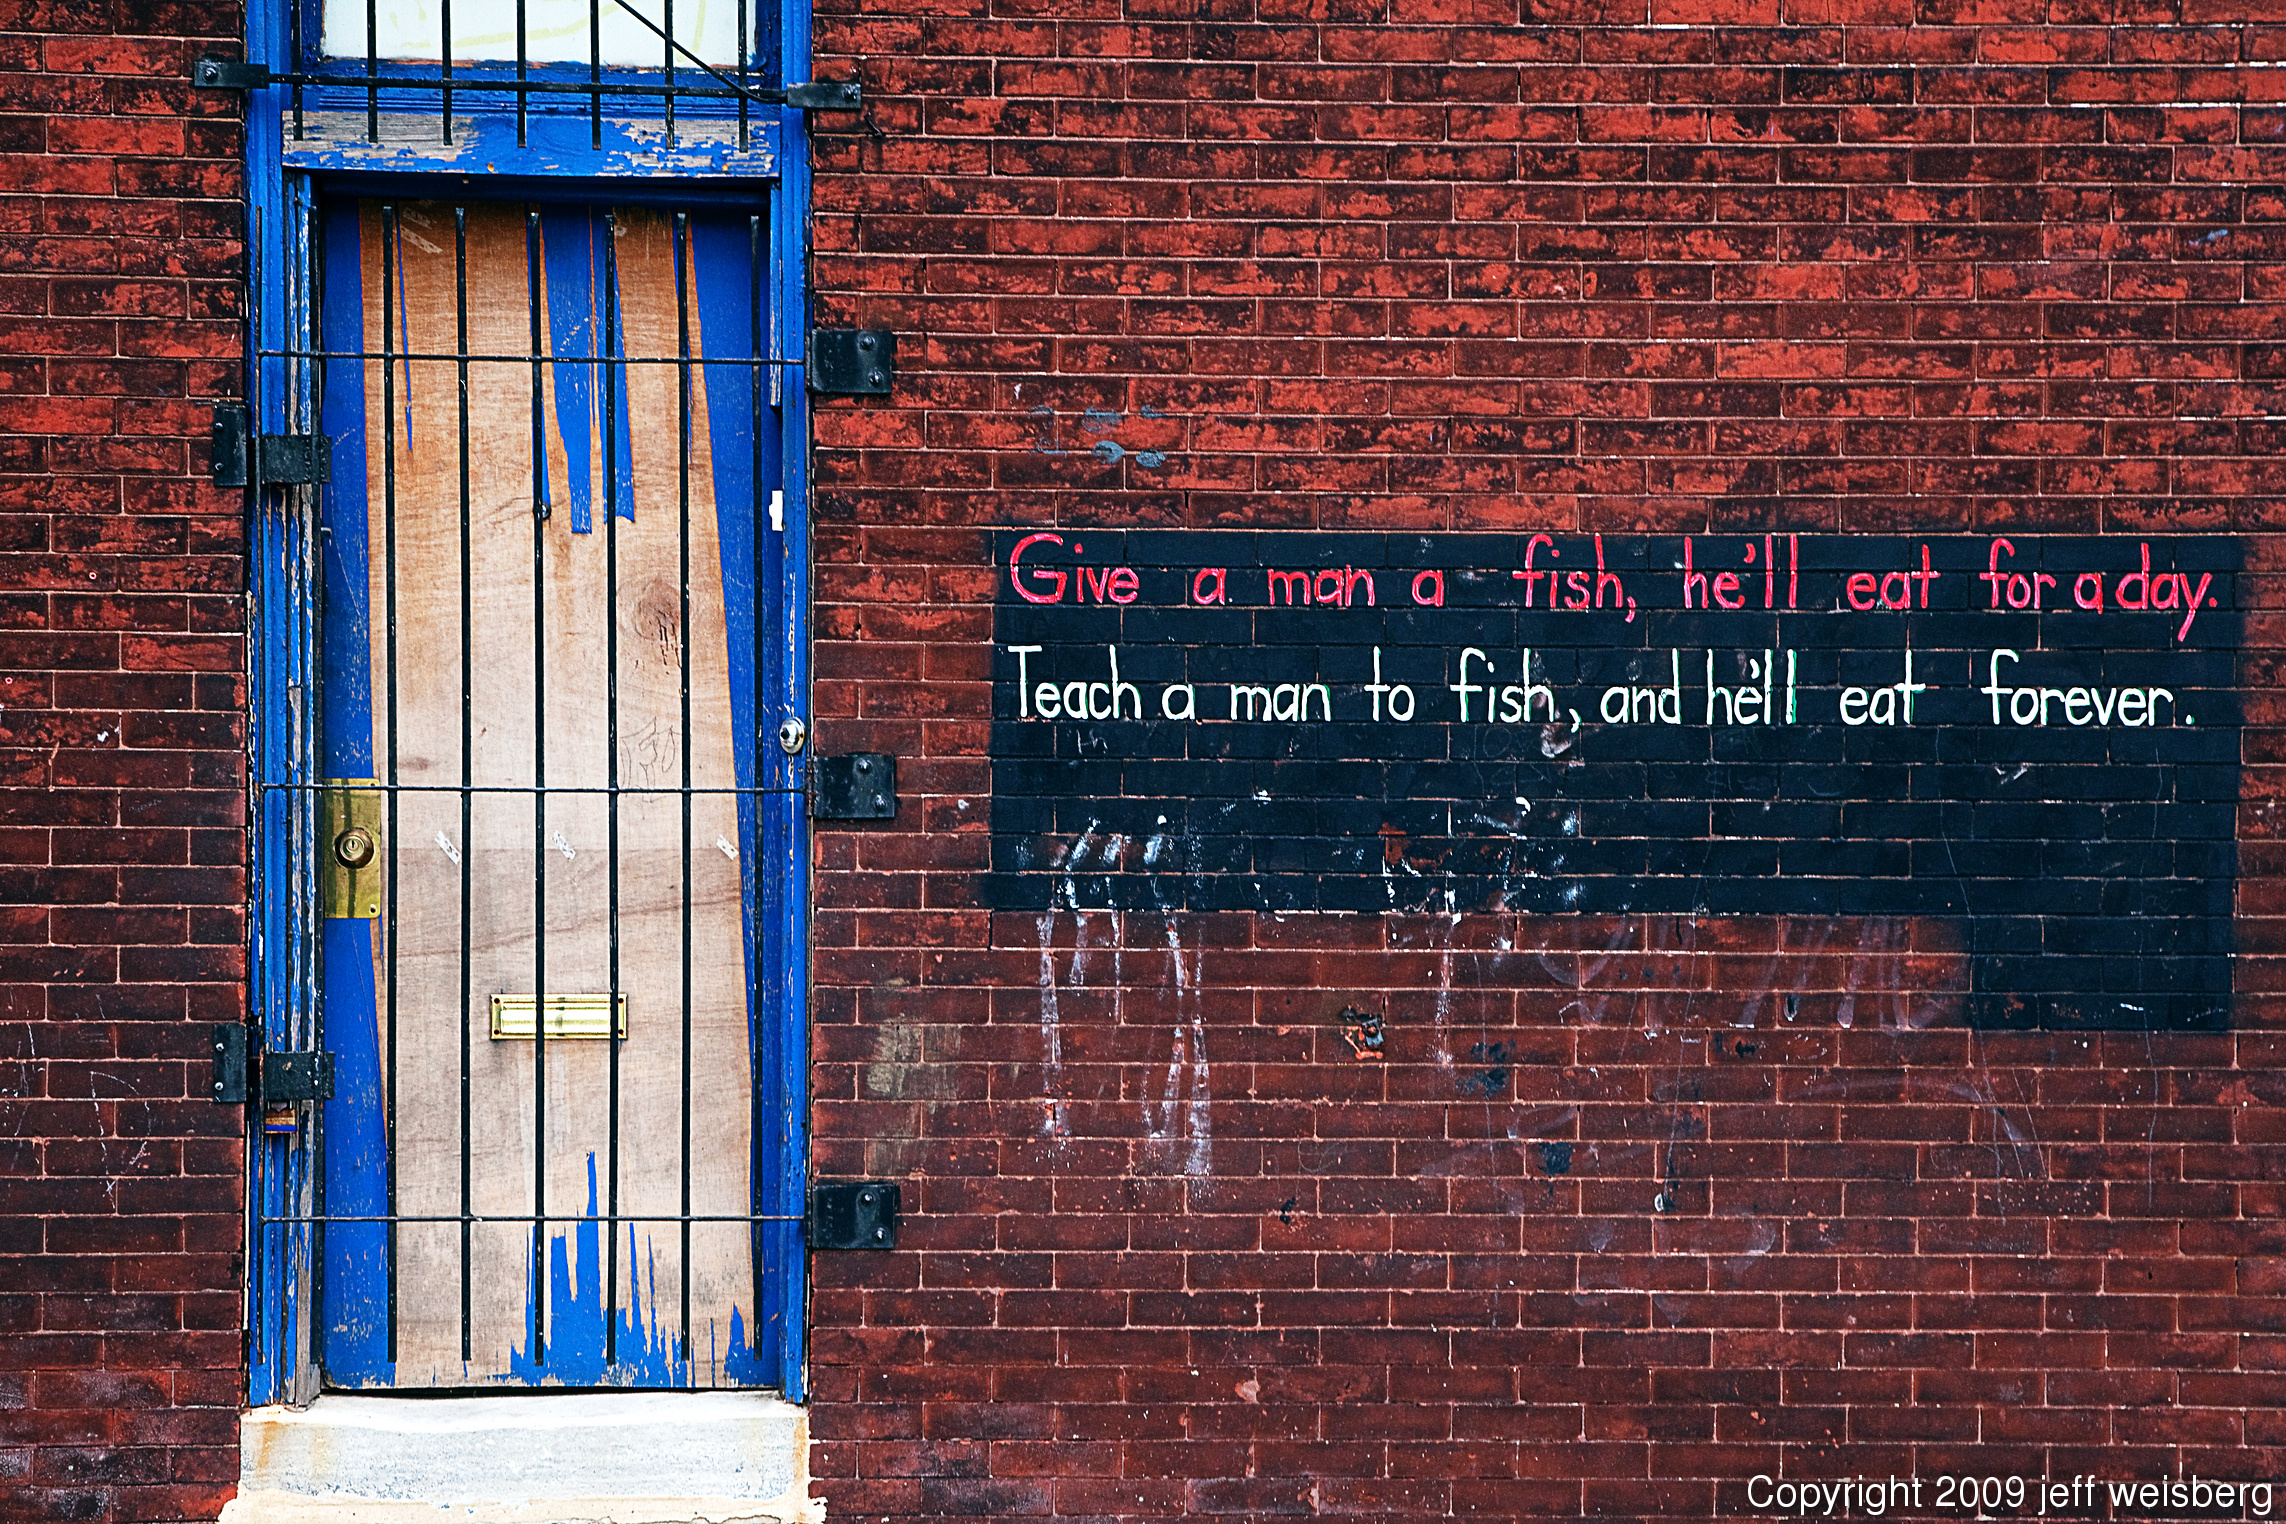 Give a man a fish, he'll eat for a day.
Teach a man to fish, and he'll eat forever.
Copyright 2009 jeff weisberg